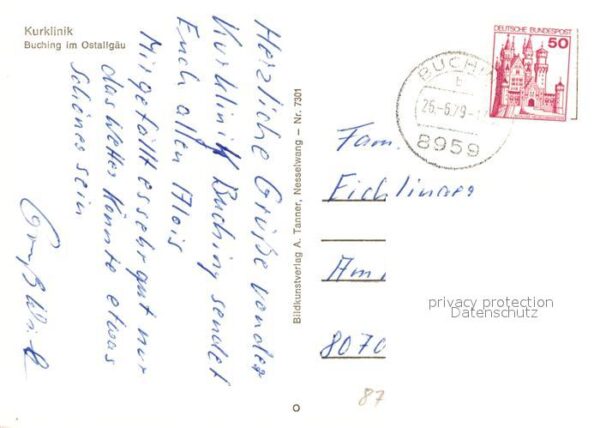 Kurklinik
Buching im Ostallgäu
Herzliche Grüße von der
Kurklinik Buching sendet
Euch allen Alois
Mir gefällt es sehr gut nur
das Wetter könnte etwas
schöner sein
Gruß
Bildkunstverlag A. Tanner, Nesselwang – Nr. 7301
DEUTSCHE BUNDESPOST
50
BUCHIN
b
26.-6.79-1
8959
Fam.
Eichlinger
Am
8070
privacy protection
Datenschutz
87